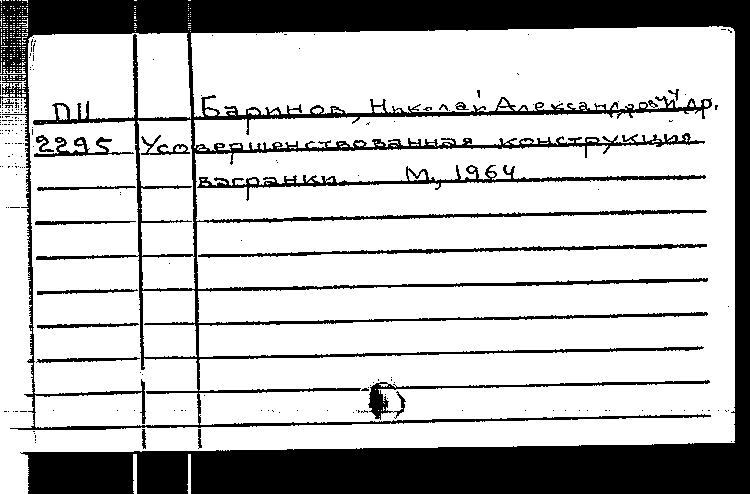 П11 Баринов, Николай Александрович и др.
2295 Усовершенствованная конструкция
вагранки. М., 1964